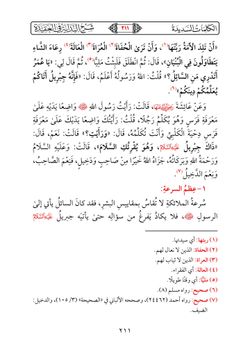 الكلمات السديدة ٢١١ شرح البداية في العقيدة
«أَنْ تَلِدَ الأَمَةُ رَبَّتَهَا(١)، وَأَنْ تَرَىٰ الْحُفَاةَ(٢) الْعُرَاةَ(٣) الْعَالَةَ(٤) رِعَاءَ الشَّاءِ
يَتَطَاوَلُونَ فِي الْبُنْيَانِ»، قَالَ: ثُمَّ انْطَلَقَ فَلَبِثْتُ مَلِيًّا(٥)، ثُمَّ قَالَ لِي: «يَا عُمَرُ
أَتَدْرِي مَنِ السَّائِلُ؟» قُلْتُ: اللهُ وَرَسُولُهُ أَعْلَمُ، قَالَ: «فَإِنَّهُ جِبْرِيلُ أَتَاكُمْ
يُعَلِّمُكُمْ دِينَكُمْ»(٦).
وَعَنْ عَائِشَةَ قَالَتْ: رَأَيْتُ رَسُولَ اللهِ ﷺ وَاضِعًا يَدَيْهِ عَلَىٰ
مَعْرَفَةِ فَرَسٍ وَهُوَ يُكَلِّمُ رَجُلًا، قُلْتُ: رَأَيْتُكَ وَاضِعًا يَدَيْكَ عَلَىٰ مَعْرَفَةِ
فَرَسِ دِحْيَةَ الْكَلْبِيِّ وَأَنْتَ تُكَلِّمُهُ، قَالَ: «وَرَأَيْتِ؟» قَالَتْ: نَعَمْ، قَالَ:
«ذَاكَ جِبْرِيلُ وَهُوَ يُقْرِئُكِ السَّلَامَ»، قَالَتْ: وَعَلَيْهِ السَّلَامُ
وَرَحْمَةُ اللهِ وَبَرَكَاتُهُ، جَزَاهُ اللهُ خَيْرًا مِنْ صَاحِبٍ وَدَخِيلٍ، فَنِعْمَ الصَّاحِبُ،
وَنِعْمَ الدَّخِيلُ(٧).
١- عِظَمُ السرعةِ:
سُرعةُ الملائكةِ لا تُقاسُ بمقاييسِ البشرِ، فقد كانَ السائلُ يأتي إلى
الرسولِ ﷺ، فلا يكادُ يَفرغُ من سؤالِهِ حتىٰ يأتيَه جبريلُ
(١) ربتها: أي سيدتها.
(٢) الحفاة: الذين لا نعال لهم.
(٣) العراة: الذين لا ثياب لهم.
(٤) العالة: أي الفقراء.
(٥) مليًّا: أي وقتًا طويلًا.
(٦) صحيح: رواه مسلم (٨).
(٧) صحيح: رواه أحمد (٢٤٤٦٢)، وصححه الألباني في «الصحيحة» (٣/ ١٠٥)، والدخيل:
الضيف.
٢١١